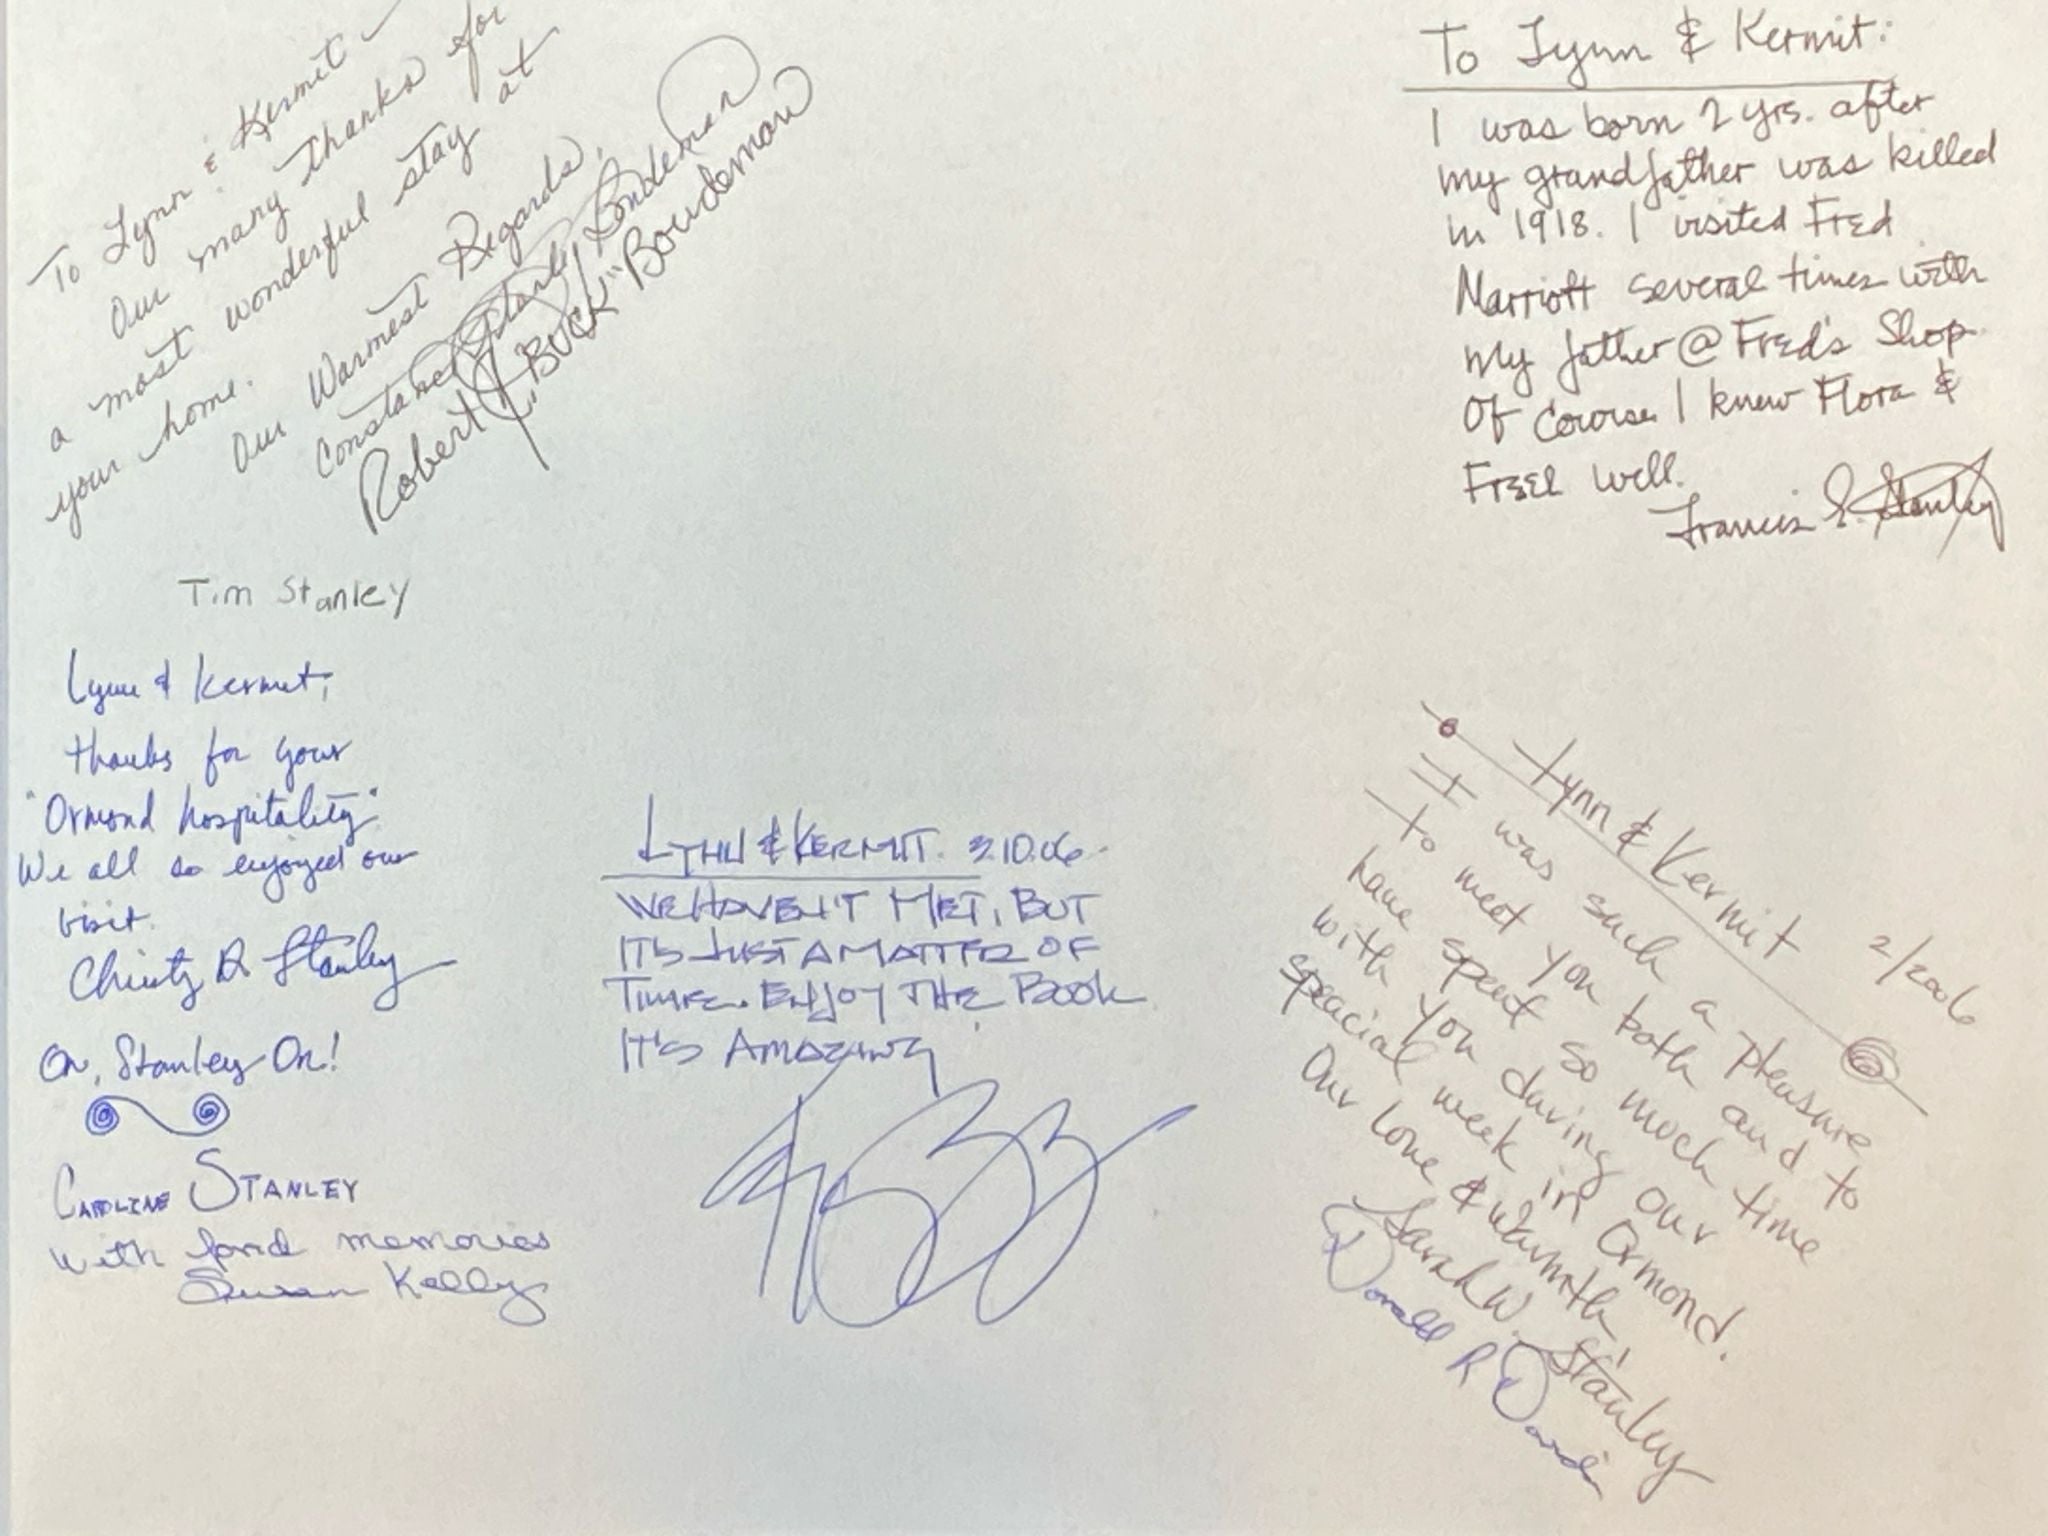 To Lynn & Kermit –
Our many thanks for
a most wonderful stay at
your home.
Our Warmest Regards,
Constance Stanley Boudeman
Robert J. "Buck" Boudeman
To Lynn & Kermit:
I was born 2 yrs. after
my grandfather was killed
in 1918. I visited Fred
Marriott several times with
my father @ Fred's Shop
Of course I knew Flora &
Fred well.
Francis E. Stanley
Tim Stanley
Lynn & Kermit,
thanks for your
"Ormond hospitality".
We all so enjoyed our
visit.
Christy D Stanley
On, Stanley On!
Caroline Stanley
with fond memories
Susan Kelly
LYNN & KERMIT. 3.10.06.
WE HAVEN'T MET, BUT
IT'S JUST A MATTER OF
TIME. ENJOY THE BOOK
IT'S AMAZING
Lynn & Kermit 2/2006
It was such a pleasure
to meet you both and to
have spent so much time
with you during our
special week in Ormond.
Our love & warmth,
Sarah W. Stanley
Donald R Davis